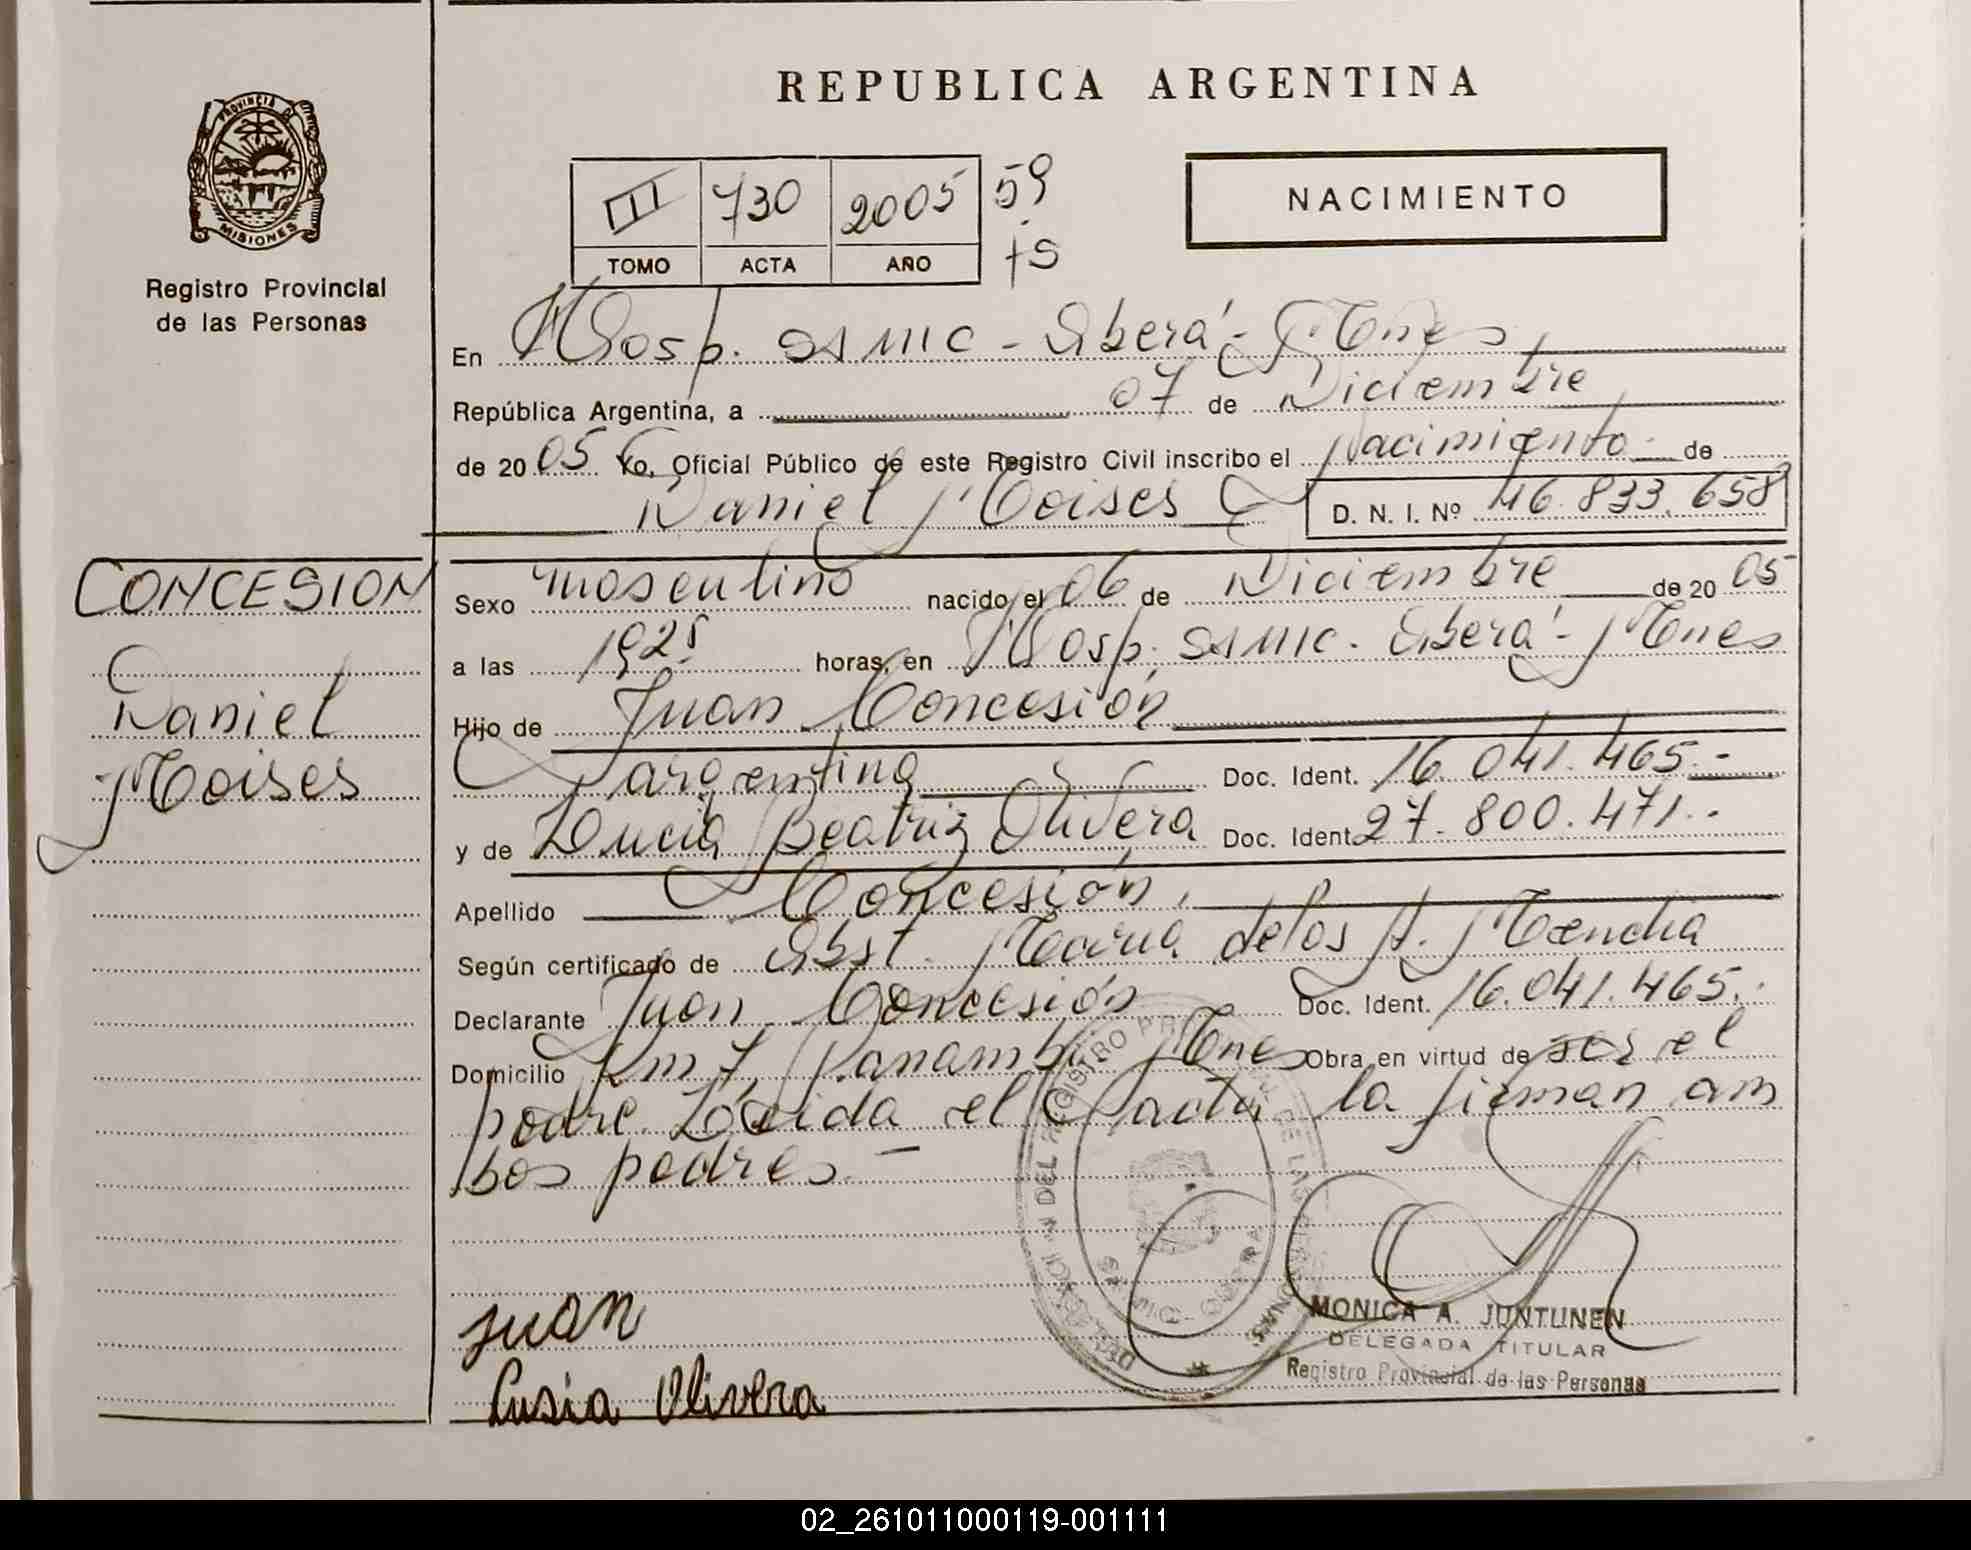 REPUBLICA ARGENTINA
PROVINCIA DE
MISIONES
Registro Provincial
de las Personas
III 730 2005 59
TOMO ACTA AÑO
NACIMIENTO
En Hosp. SAMIC - Oberá - Mnes
República Argentina, a 07 de Diciembre
de 20 05 Yo, Oficial Público de este Registro Civil inscribo el Nacimiento de
Daniel Moises D. N. I. Nº 46.833.658
CONCESION
Daniel
Moises
Sexo masculino nacido el 06 de Diciembre de 20 05
a las 1925 horas, en Hosp. SAMIC. Oberá - Mnes
Hijo de Juan Concesión
argentina Doc. Ident. 16.041.465.-
y de Lucia Beatriz Olivera Doc. Ident. 27.800.471.-
Apellido Concesión.
Según certificado de Obst. Maria de los A. Mendia
Declarante Juan Concesión Doc. Ident. 16.041.465.
Domicilio Km 7, Panambí. Mnes Obra en virtud de ser el
padre. Leída el acta la firman am
bos padres.-
juan
Lusia Olivera
MONICA A. JUNTUNEN
DELEGADA TITULAR
Registro Provincial de las Personas
02_261011000119-001111